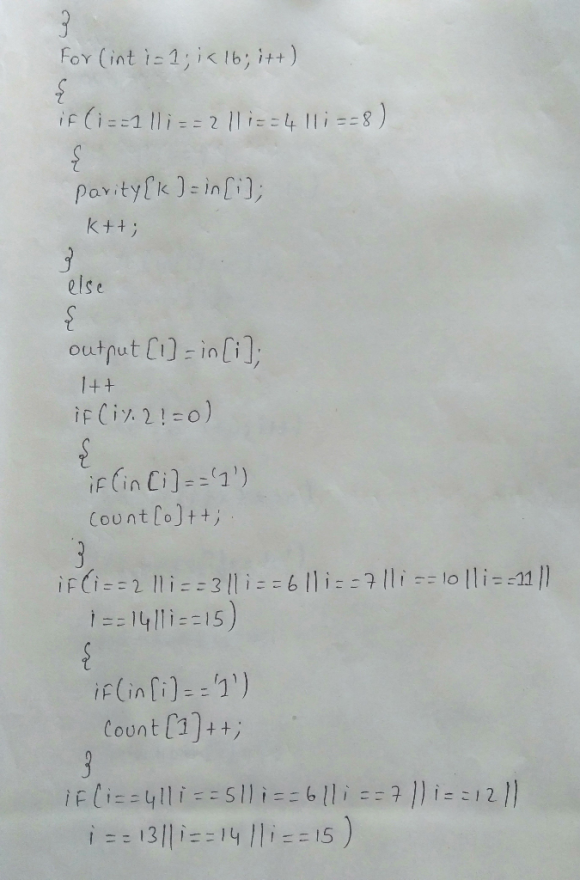 }
For (int i=1; i<16; i++)
{
if (i==1 || i==2 || i==4 || i==8)
{
parity[k]=in[i];
k++;
}
else
{
output[l]=in[i];
l++
if (i%2!=0)
{
if (in[i]=='1')
count[0]++;
}
if (i==2 || i==3 || i==6 || i==7 || i==10 || i==11 ||
i==14 || i==15)
{
if (in[i]=='1')
Count[1]++;
}
if (i==4 || i==5 || i==6 || i==7 || i==12 ||
i==13 || i==14 || i==15)